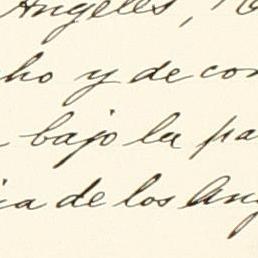 Angeles,
cho y de con
bajo la pa
ia de los Ang